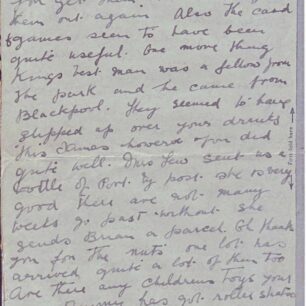 them out again Also the card
games seem to have been
quite useful. One more thing
Kings best man was a fellow from
The park and he came from
Blackpool. They seemed to have
slipped up over your drinks
this Xmas however you did
quite well. Mrs Few sent us a
bottle of Port by post. she is very
good there are not many
weeks go past without she
sends Brian a parcel. Oh thank
you for the nuts one lot has
arrived quite a lot of them too
Are there any childrens Toys your
has got roller skates
First fold here